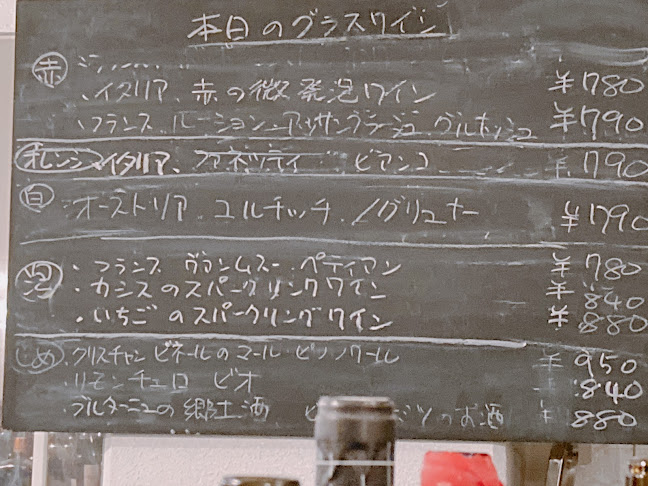 本日のグラスワイン
赤
・イタリア、赤の微発泡ワイン ¥780
・フランス ルーション アッサンブラージュ ¥790
オレンジ イタリア、ファネッティ ビアンコ ¥790
白 オーストリア、ユルチッチ、グリューナー ¥790
泡 ・フランス ヴァンムスー ペティアン ¥780
・カシスのスパークリングワイン ¥840
・いちごのスパークリングワイン ¥880
じめ ・クリスチャンビネールのマール・ピノノワール ¥950
・リモンチェロ ビオ ¥840
・ブルターニュの郷土酒 のお酒 ¥880